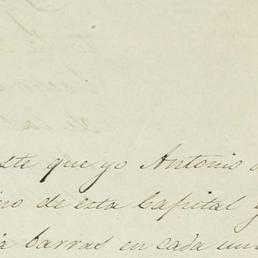 ste que yo Antonio
ino de esta Capital y
a barras en cada un